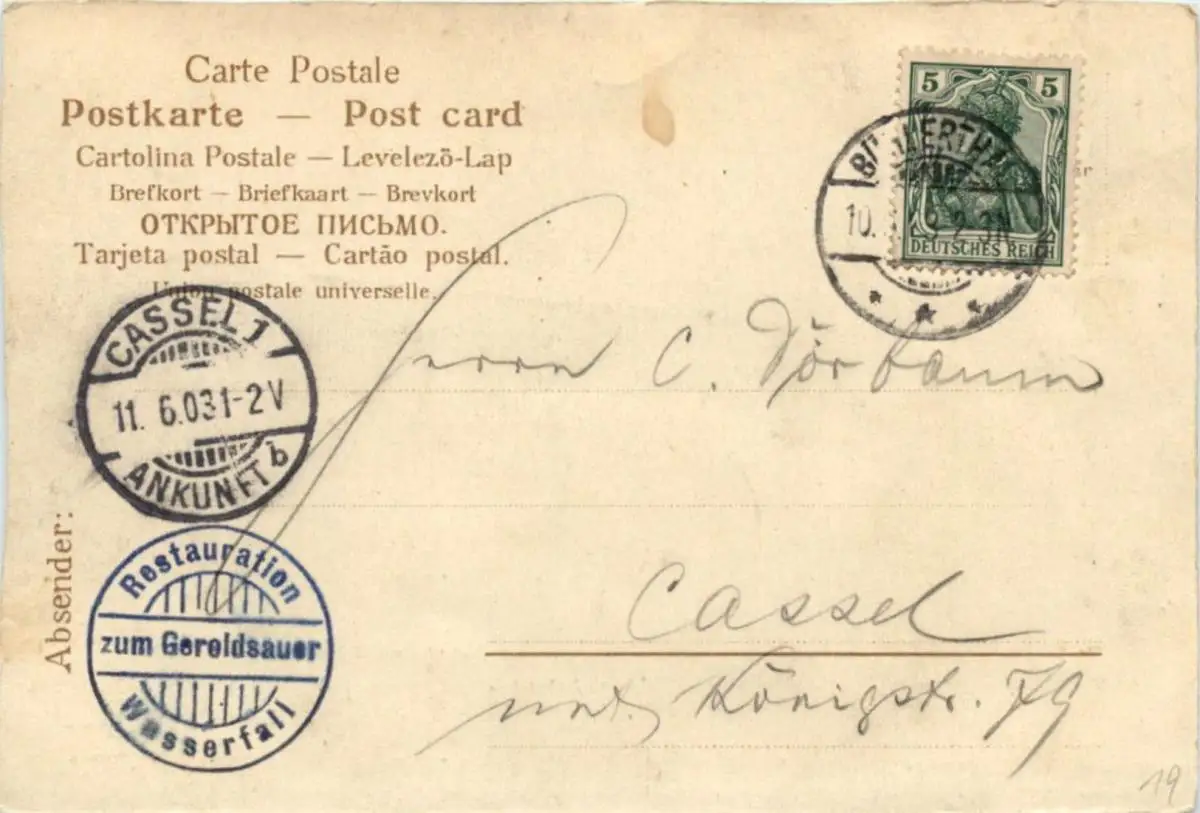 Carte Postale
Postkarte — Post card
Cartolina Postale — Levelezō-Lap
Brefkort — Briefkaart — Brevkort
ОТКРЫТОЕ ПИСЬМО.
Tarjeta postal — Cartão postal.
Union postale universelle.
5 5
DEUTSCHES REICH
10.
CASSEL 1
11. 6.03 1-2 V
ANKUNFT b
Herrn C. Dörbaum
Absender:
Restauration
zum Geroldsauer
Wasserfall
Cassel
unt. Königstr. 79
19